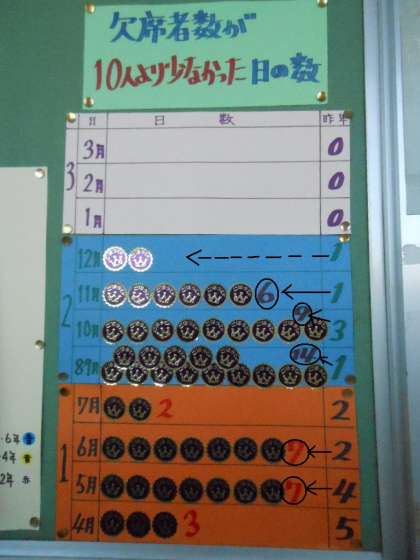 欠席者数が
10人より少なかった日の数
月 日 数 昨年
3
3月 0
2月 0
1月 0
2
12月 1
11月 6 1
10月 9 3
89月 14 1
1
7月 2 2
6月 7 2
5月 7 4
4月 3 5
・6年 青
・4年 黄
2年 赤